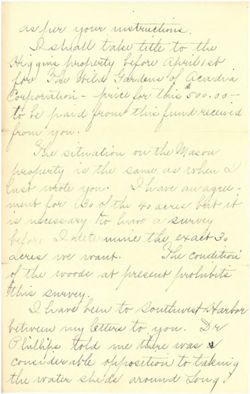 as per your instructions.
I shall take title to the
Higgins property before April 1st
for The Wild Gardens of Acadia
Corporation - price for this $500.00 -
to be paid from this fund received
from you.
The situation on the Mason
property is the same as when I
last wrote you. I have an agree-
ment for 30 of the 40 acres but it
is necessary to have a survey
before I determine the exact 30
acres we want. The condition
of the woods at present prohibits
this survey.
I have been to Southwest Harbor
between my letters to you. Dr
Phillips told me there was
considerable opposition to taking
the water sheds around Long